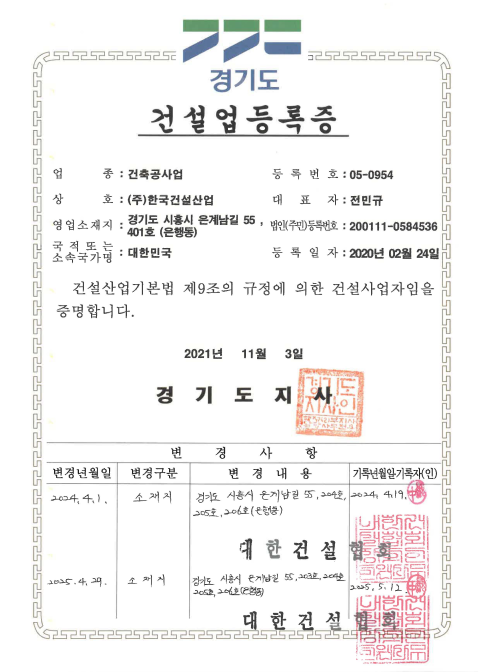 경기도
건설업등록증
업 종 : 건축공사업 등 록 번 호 : 05-0954
상 호 : (주)한국건설산업 대 표 자 : 전민규
영업소재지 : 경기도 시흥시 은계남길 55, 401호 (은행동) 법인(주민)등록번호 : 200111-0584536
국적 또는 소속국가명 : 대한민국 등 록 일 자 : 2020년 02월 24일
건설산업기본법 제9조의 규정에 의한 건설사업자임을
증명합니다.
2021년 11월 3일
경 기 도 지 사
변 경 사 항
변경년월일 변경구분 변 경 내 용 기록년월일기록자(인)
2024. 4. 1. 소재지 경기도 시흥시 은계남길 55, 204호, 2024. 4. 19.
205호, 206호 (은행동)
대한건설협회
2025. 4. 29. 소재지 경기도 시흥시 은계남길 55, 203호, 204호 2025. 5. 12
205호, 206호(은행동)
대한건설협회